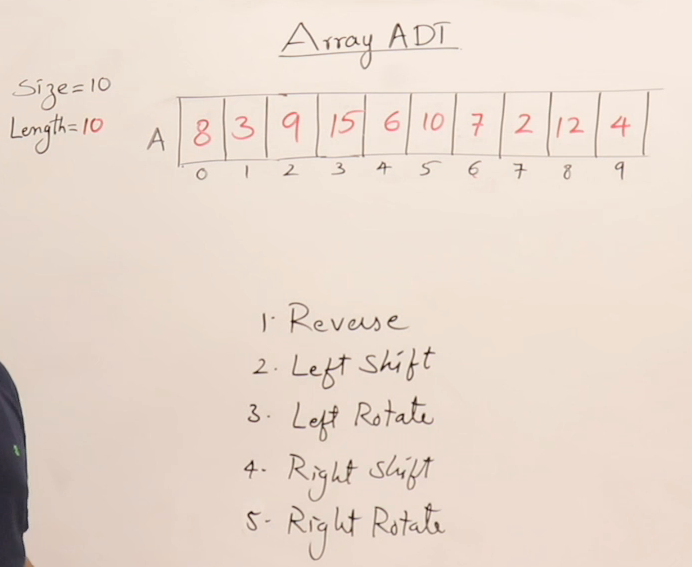 Array ADT
Size=10
Length=10
A 8 3 9 15 6 10 7 2 12 4
0 1 2 3 4 5 6 7 8 9
1. Reverse
2. Left Shift
3. Left Rotate
4. Right Shift
5- Right Rotate